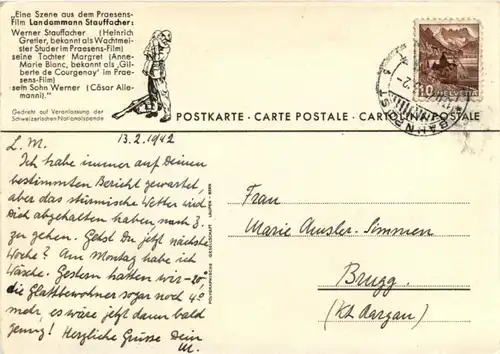 „Eine Szene aus dem Praesens-
Film Landammann Stauffacher:
Werner Stauffacher (Heinrich
Gretler, bekannt als Wachtmei-
ster Studer im Praesens-Film)
seine Tochter Margret (Anne-
Marie Blanc, bekannt als ‚Gil-
berte de Courgenay' im Prae-
sens-Film)
sein Sohn Werner (Cäsar Alle-
manni).“
Gedreht auf Veranlassung der
Schweizerischen Nationalspende
10 HELVETIA
POSTKARTE · CARTE POSTALE · CARTOLINA POSTALE
13.2.1942
L. M.
Ich habe immer auf Deinen
bestimmten Bericht gewartet,
aber das stürmische Wetter wird
Dich abgehalten haben, nach Z.
zu gehen. Gehst Du jetzt nächste
Woche? Am Montag habe ich
Wäsche. Gestern hatten wir -20°,
die Glattbewohner sogar noch 4°
mehr, es wäre jetzt dann bald
genug! Herzliche Grüsse Dein
M.
POLYGRAPHISCHE GESELLSCHAFT LAUPEN-BERN
Frau
Marie Amsler-Simmen
Brugg.
(Kt. Aargau)